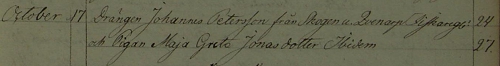 October 17 Drängen Johannes Petersson från Skogen u. Qvenarp 24
och Pigan Maja Greta Jonasdotter Ibidem 27.